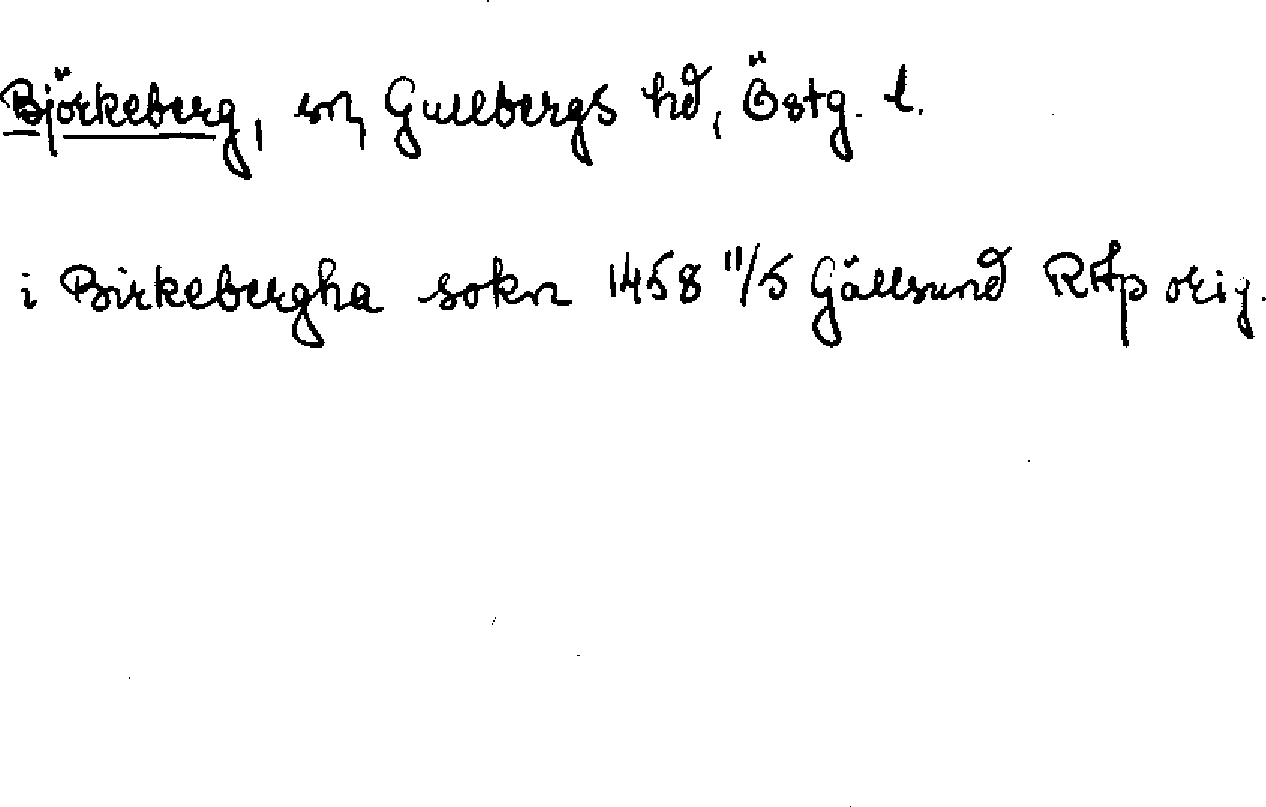 Björkeberg, sn, Gullbergs hd, Östg. l.
i Birkebergha sokn 1458 11/5 Gällsund RAp orig.